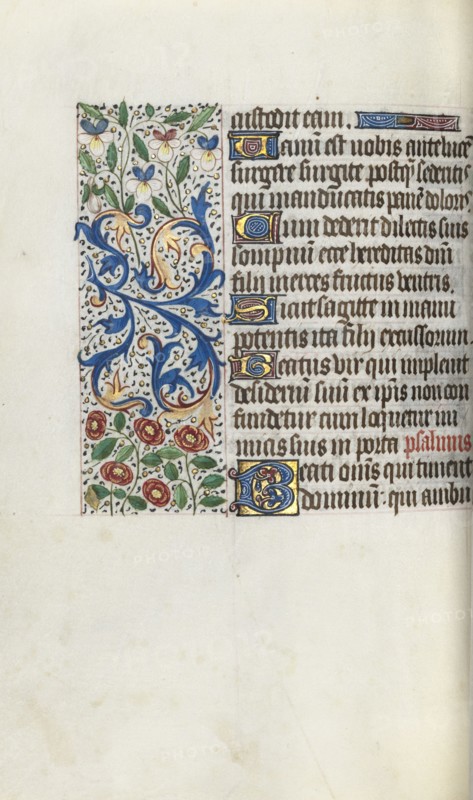 qistodit eam.
Uanum est uobis anteluce
surgere surgite postq̄ sedentis
qui manducatis panē doloris
Cum dederit dilectis suis
sompnū ecce hereditas dn̄i
filii merces fructus uentris.
Sicut sagitte in manu
potentis ita filii excussorum.
Beatus vir qui impleuit
desideriū suū ex ip̄is non con
fundetur cum loquetur ini
micis suis in porta psalmus
Beati om̄s qui timent
dominū: qui ambu